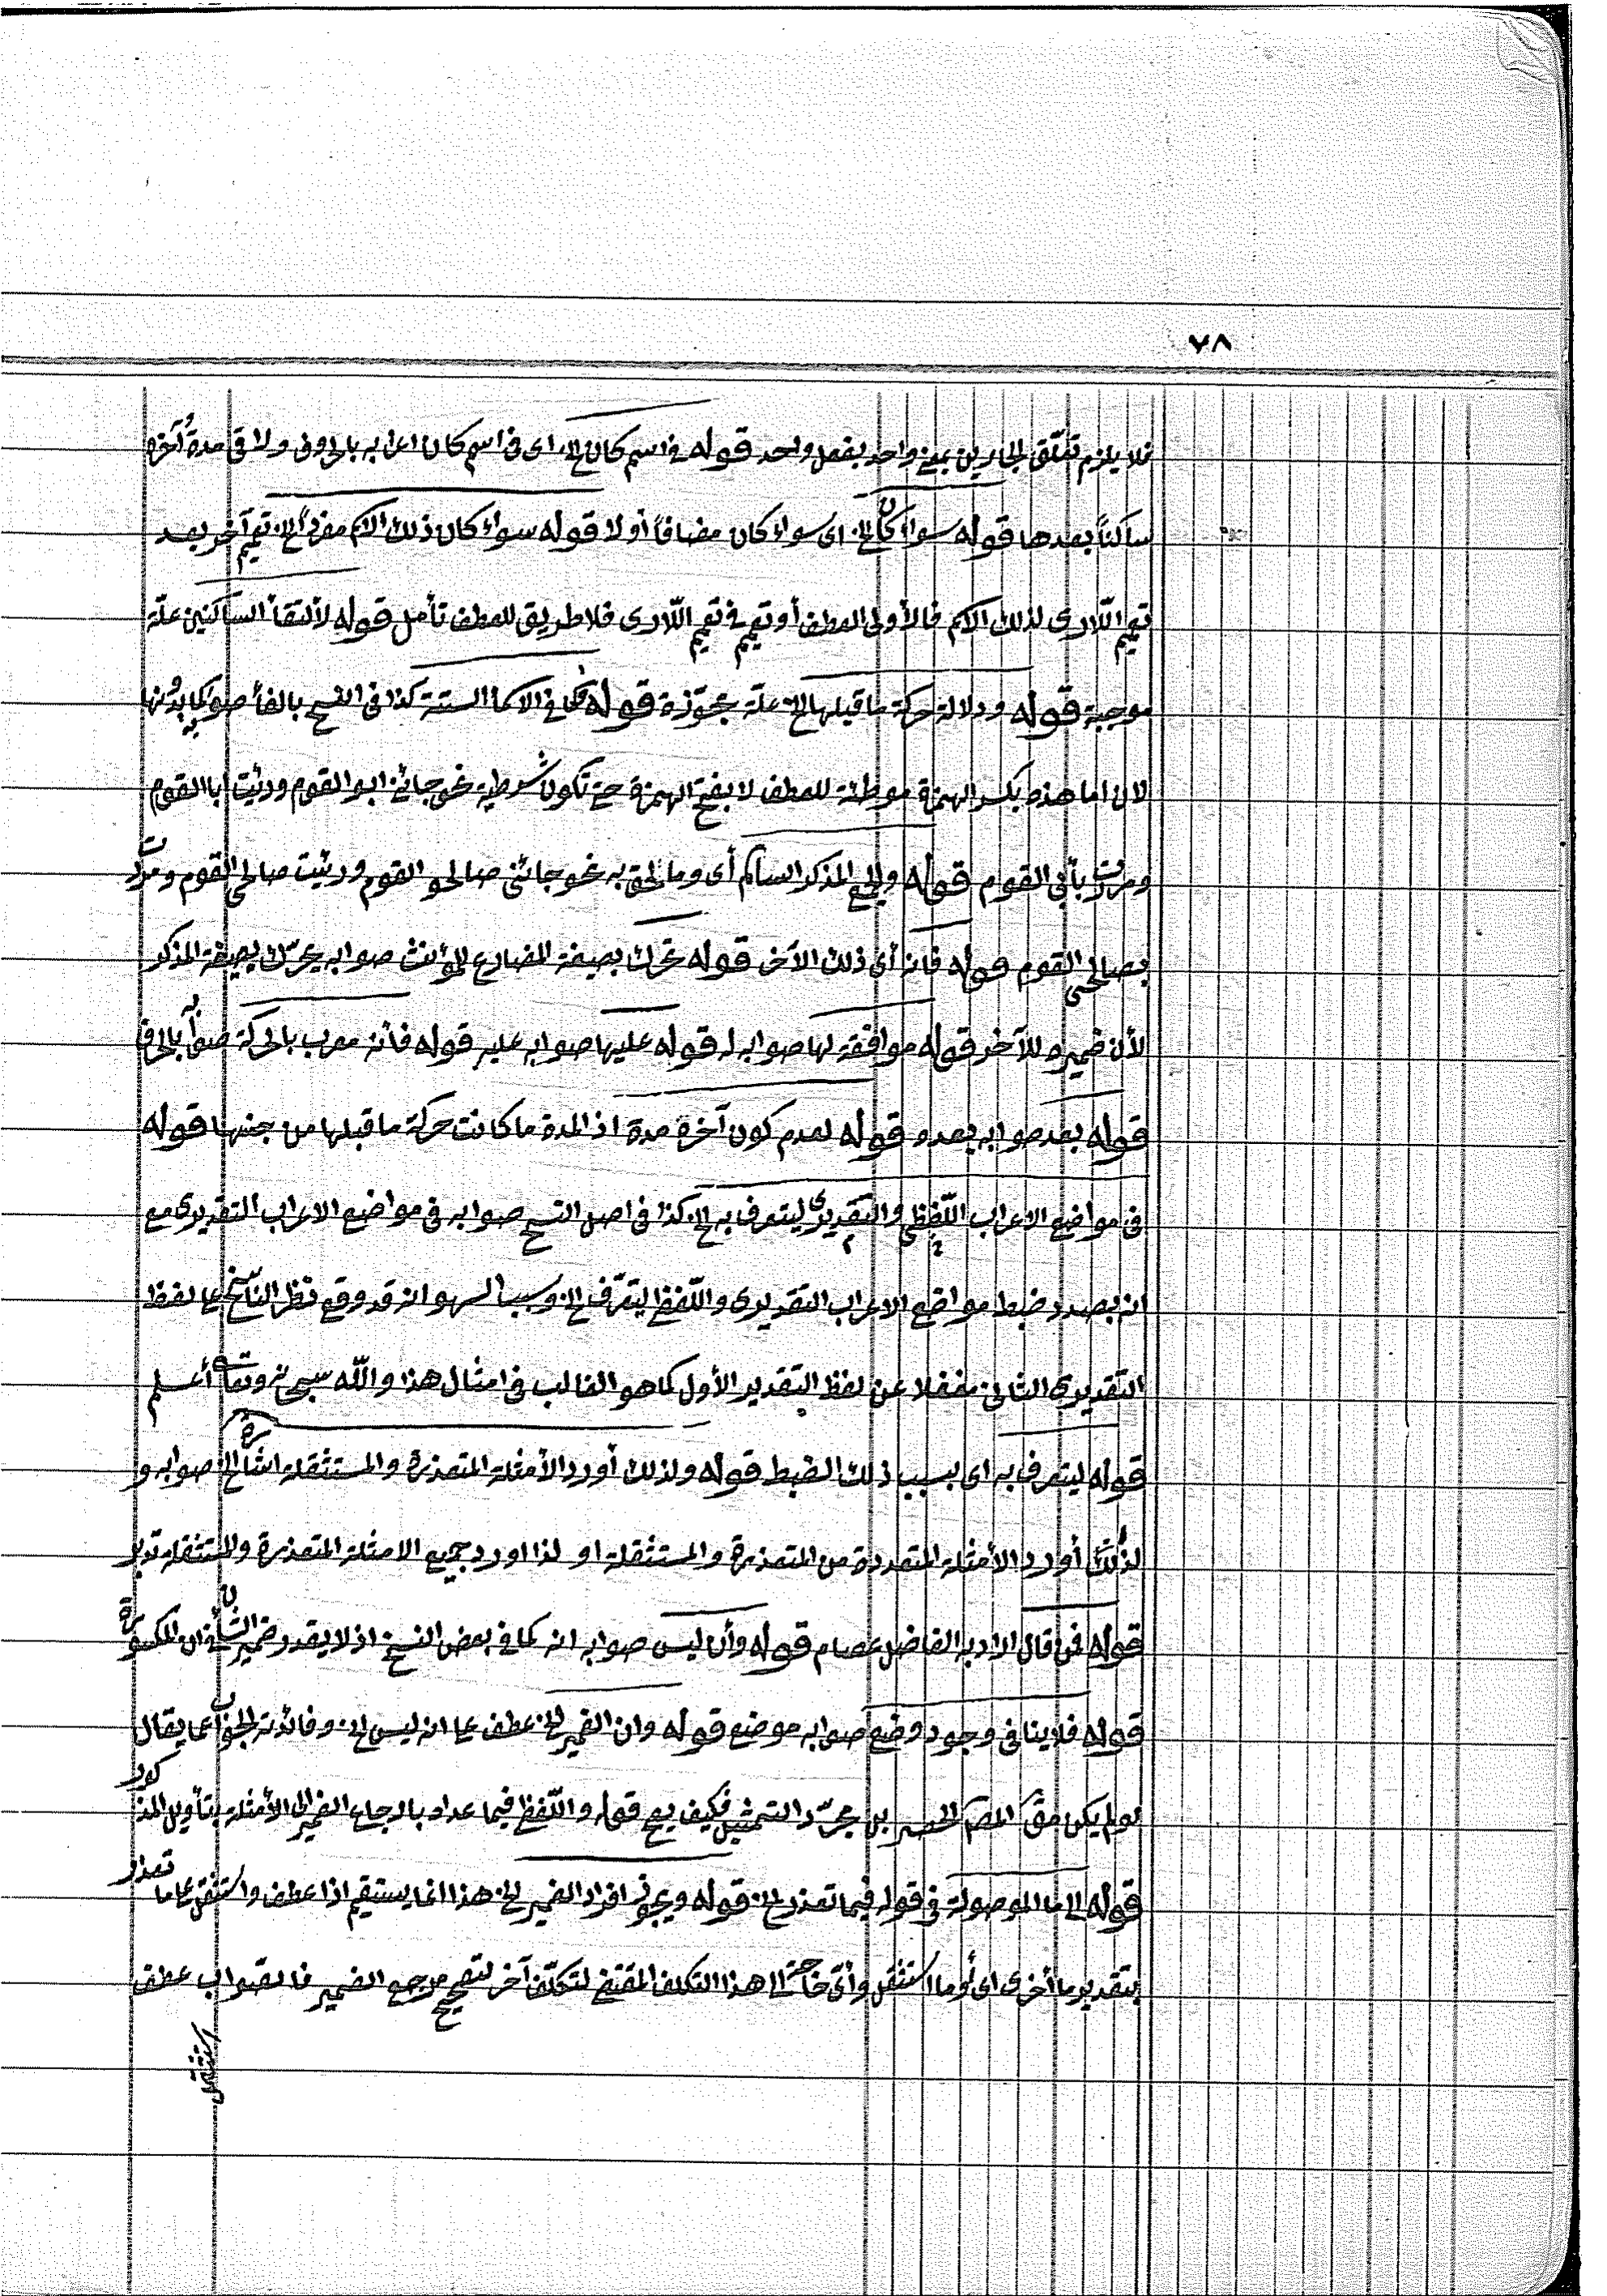 ٧٨
فلا يلزم تعلّق الجارين بمعنى واحد بفعل واحد قوله في اسم كان الخ اى فى اسم كان اعرابه بالحروف ولاقى مدة آخره
ساكناً بعدها قوله سواء كان الخ اى سواء كان مضافاً أو لا قوله سواء كان ذلك الاسم مفرداً الخ تعميم آخر بعد
تعميم اللّارى لذلك الاسم فالأولى العطف أو تعميم فى تعميم اللّارى فلا طريق للعطف تأمل قوله لألتقأ الساكنين علّة
موجبة قوله ودلالة حركة ما قبلها الخ علّة مجوّزة قوله فكما فى الاسماء الستة كذا فى النسخ بالفأ صوابه كما بدونها
لان اما هذه بكسر الهمزة موطئة للعطف لا بفتح الهمزة حتى تكون شرطية نحو جائنى ابو القوم ورئيت ابا القوم
ومررت بأبى القوم قوله والجمع المذكر السالم أى وما الحق به نحو جائنى صالحو القوم ورئيت صالحى القوم ومررت
بصالحى القوم قوله فانه أى ذلك الآخر قوله تحرك بصيغة المضارع للمؤنث صوابه يحرّك بصيغة المذكر
لأن ضميره للآخر قوله موافقة لها صوابه له قوله عليها صوابه عليه قوله فأنه معرب بالحركة صوابه بالحرف
قوله بعد صوابه بعده قوله لعدم كون آخره مدة اذ المدة ما كانت حركة ما قبلها من جنسها قوله
فى مواضع الاعراب اللّفظى والتقديرى ليتعرف به الخ كذا فى اصل النسخ صوابه فى مواضع الاعراب التقديرى مع
انه بصدد ضبط مواضع الاعراب التقديرى واللّفظى ليتعرّف الخ وسبب السهو انه قد وقع نظر الناسخ على لفظ
التقديرى الثانى مغفلا عن لفظ التقدير الأول كما هو الغالب فى امثال هذا واللّه سبحانه وتعالى أعلم
قوله ليتعرف به اى بسبب ذلك الضبط قوله ولذلك أورد الأمثلة المتعذرة والمستثقلة اشارة الخ صوابه و
لذلك أورد الأمثلة المتعددة من المتعذرة والمستثقلة او لذا اورد جميع الامثلة المتعذرة والمستثقلة تدبر
قوله فمن قال اراد به الفاضل عصام قوله وأن ليس صوابه انه كما فى بعض النسخ اذ لا يقدر ضمير الشأن فى ان المكسورة
قوله فلا ينافى وجود وضع صوابه موضع قوله وان الضمير الخ عطف على انه ليس الخ وفائدته الجواب عما يقال
لو لم يكن مق المص الحصر بل مجرّد التمثيل فكيف يصح قوله واللّفظى فيما عداه بارجاع الضمير الى الأمثلة بتأويل المذكور
قوله الى ما الموصولة فى قوله فيما تعذر الخ قوله ويجوز افراد الضمير الخ هذا انما يستقيم اذا عطف واستثقل على ما تعذر
بتقدير ما أخرى اى أو ما استثقل وأىّ حاجة الى هذا التكلف المقتضى لتكلّف آخر لتصحيح مرجع الضمير فالصّواب عطف
استثقل